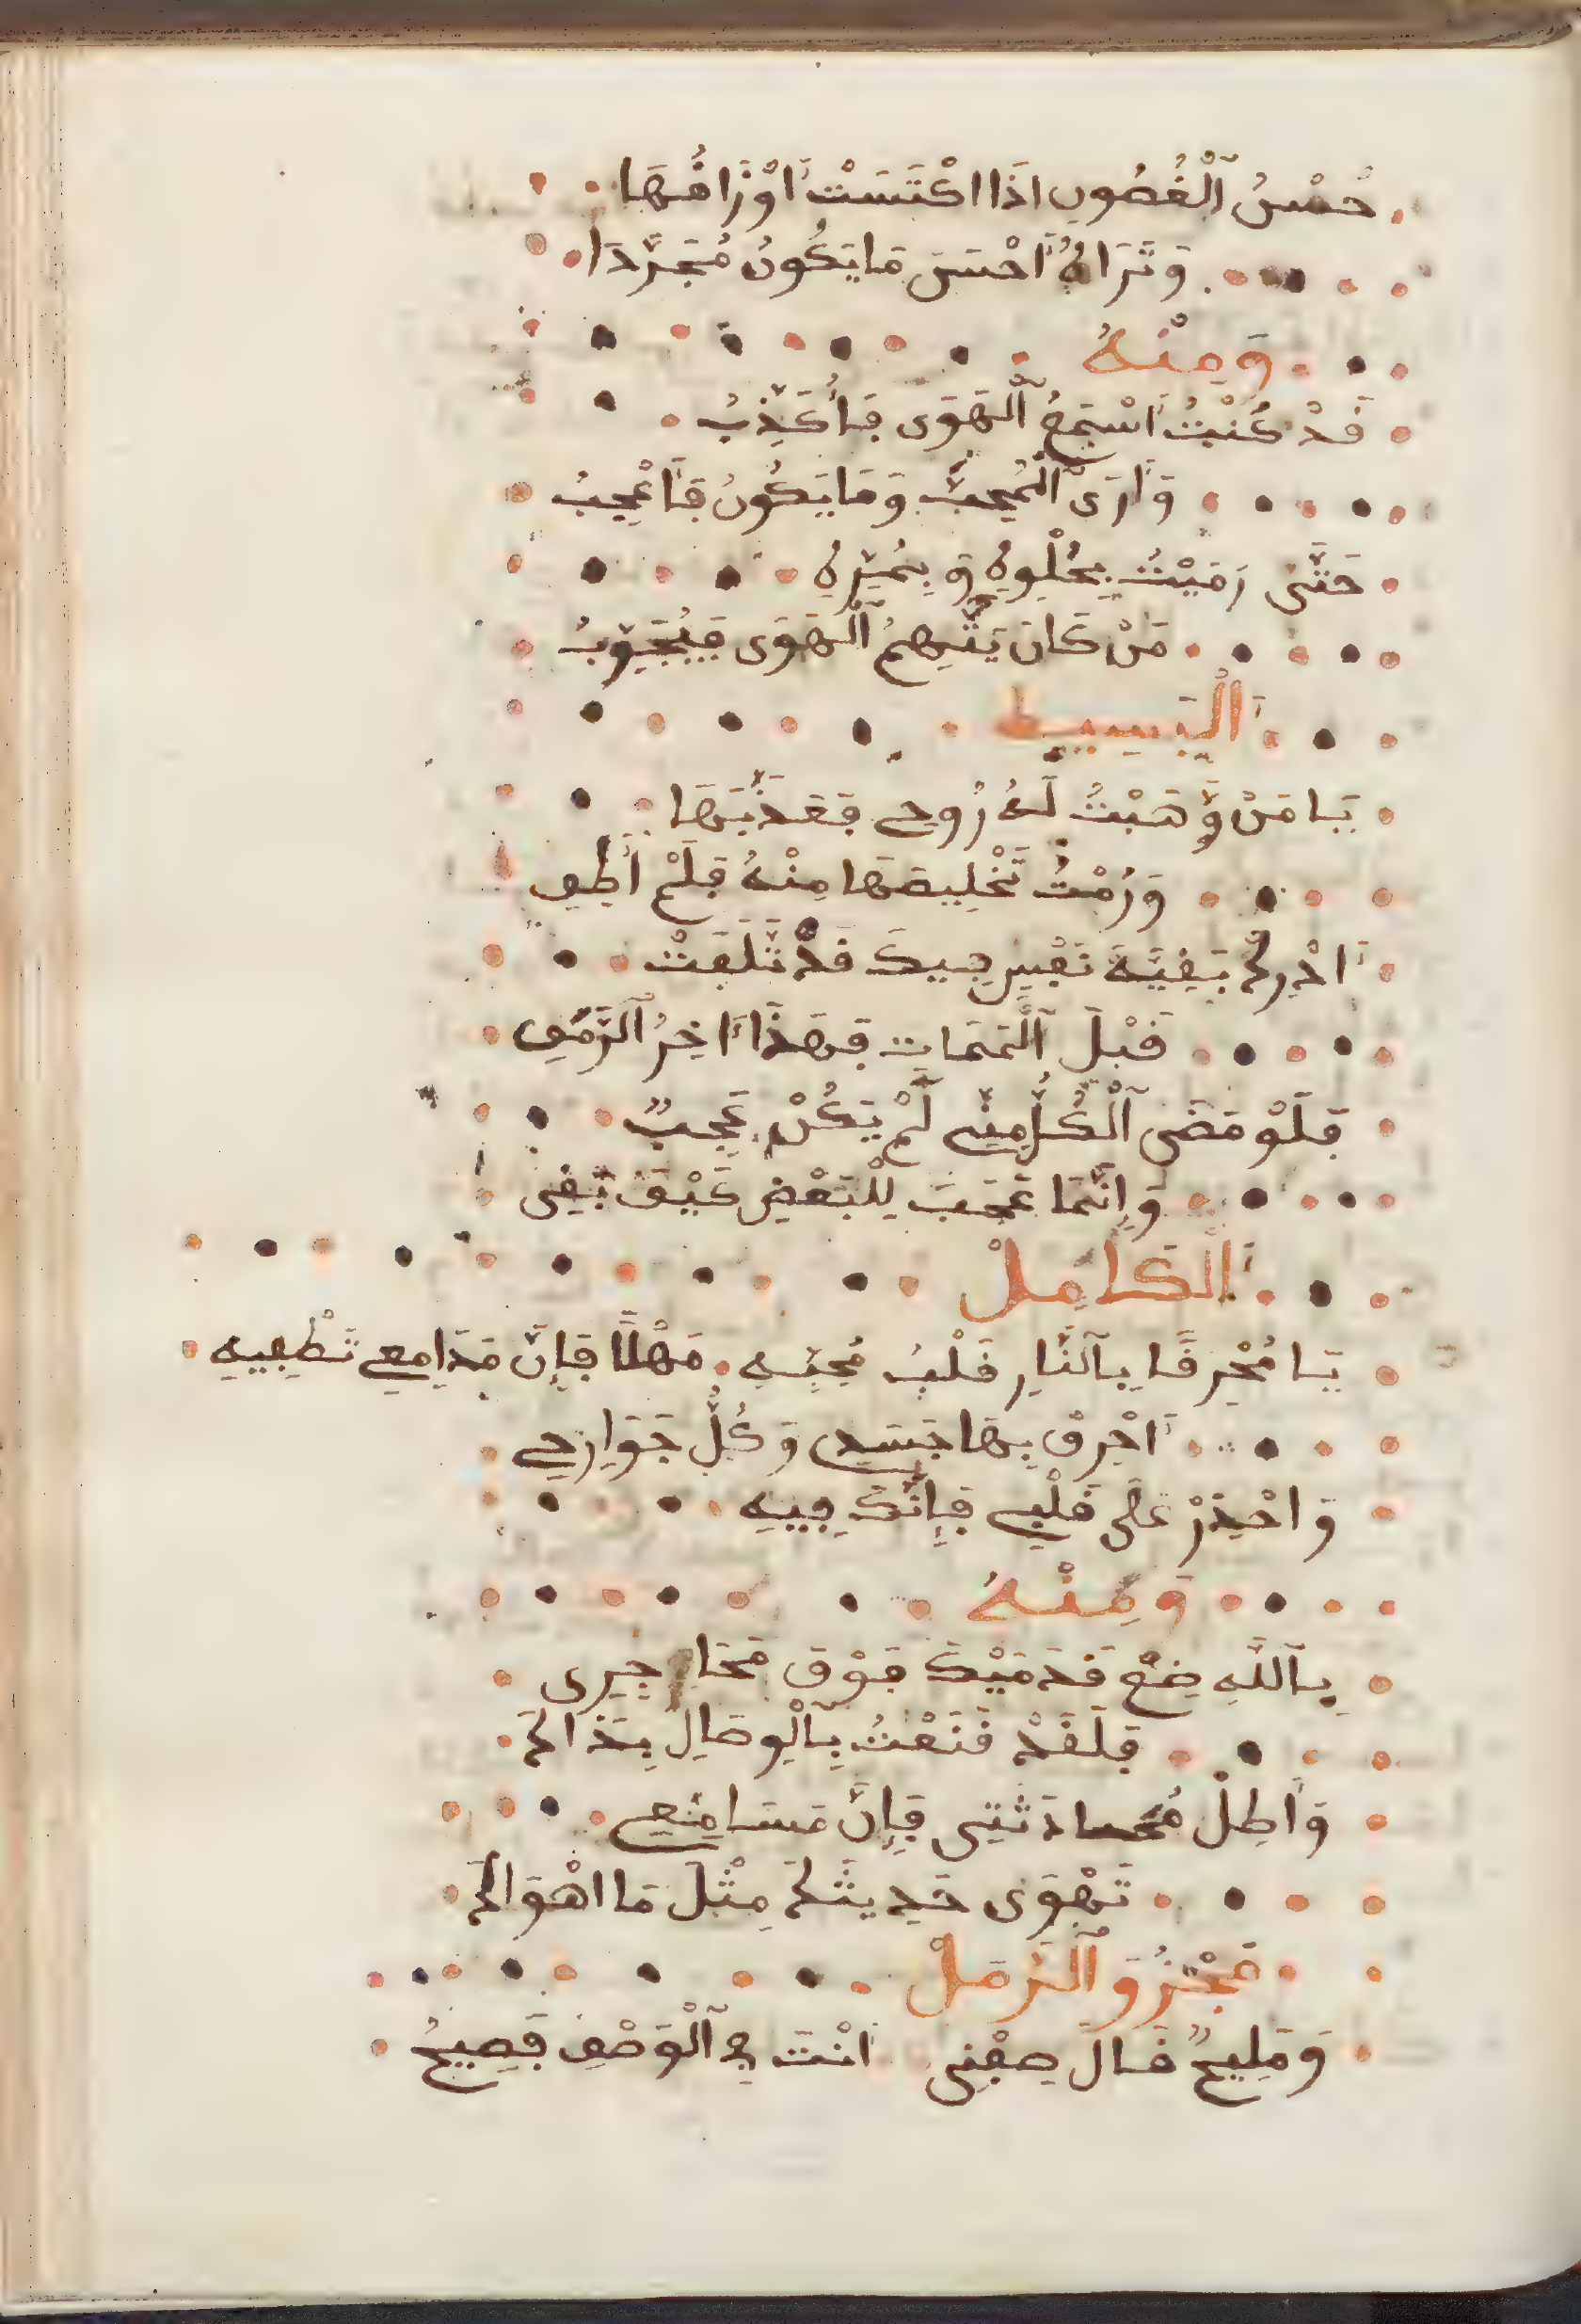 حُسْنُ ٱلْغُصُونِ اذَا اكْتَسَتْ اَوْرَاقُهَا
وَتَرَاهُ اَحْسَنَ مَا يَكُونُ مُجَرَّدَا
وَمِنْهُ
قَدْ كُنْتُ اَسْمَعُ ٱلْهَوَى فَأُكَذِّبُ
وَأَرَى ٱلْمُحِبَّ وَمَا يَكُونُ فَأَعْجِبُ
حَتَّى رَمَيْتُ بِحُلْوِهِ وَبِمُرِّهِ
مَنْ كَانَ يَتَّهِمُ ٱلْهَوَى فَيُجَرِّبُ
اَلْبَسِيط
يَا مَنْ وَّهَبْتُ لَهُ رُوحِي فَعَذَّبَهَا
وَرُمْتُ تَخْلِيصَهَا مِنْهُ فَلَمْ أُطِقِ
اَدْرِكْ بَقِيَّةَ نَفْسٍ فِيكَ قَدْ تَّلَفَتْ
قَبْلَ ٱلْمَمَاتِ فَهَذَا ءَاخِرُ ٱلرَّمَقِ
فَلَوْ مَضَى ٱلْكُلُّ مِنِّي لَمْ يَكُنْ عَجَبٌ
وَإِنَّمَا عَجَبَ لِلْبَعْضِ كَيْفَ بَقِى
اَلْكَامِلْ
يَا مُحْرِقًا بِٱلنَّارِ قَلْبَ مُحِبِّهِ مَهْلًا فَإِنَّ مَدَامِعِي تَطْفِيهِ
اَحْرِقْ بِهَا جَسَدِي وَكُلَّ جَوَارِحِي
وَاحْذَرْ عَلَى قَلْبِي فَإِنَّكَ فِيهِ
وَمِنْهُ
بِٱللَّهِ ضَعْ قَدَمَيْكَ فَوْقَ مَحَاجِرِى
فَلَقَدْ قَنَعْتُ بِٱلْوِصَالِ بِذَاكَ
وَأَطِلْ مُحَادَثَتِى فَإِنَّ مَسَامِعِي
تَهْوَى حَدِيثَكَ مِثْلَ مَا اهْوَاكَ
مَجْزُوَ ٱلرَّمَلْ
وَمَلِيحٌ قَالَ صِفْنِى اَنْتَ فِي ٱلْوَصْفِ فَصِيحُ